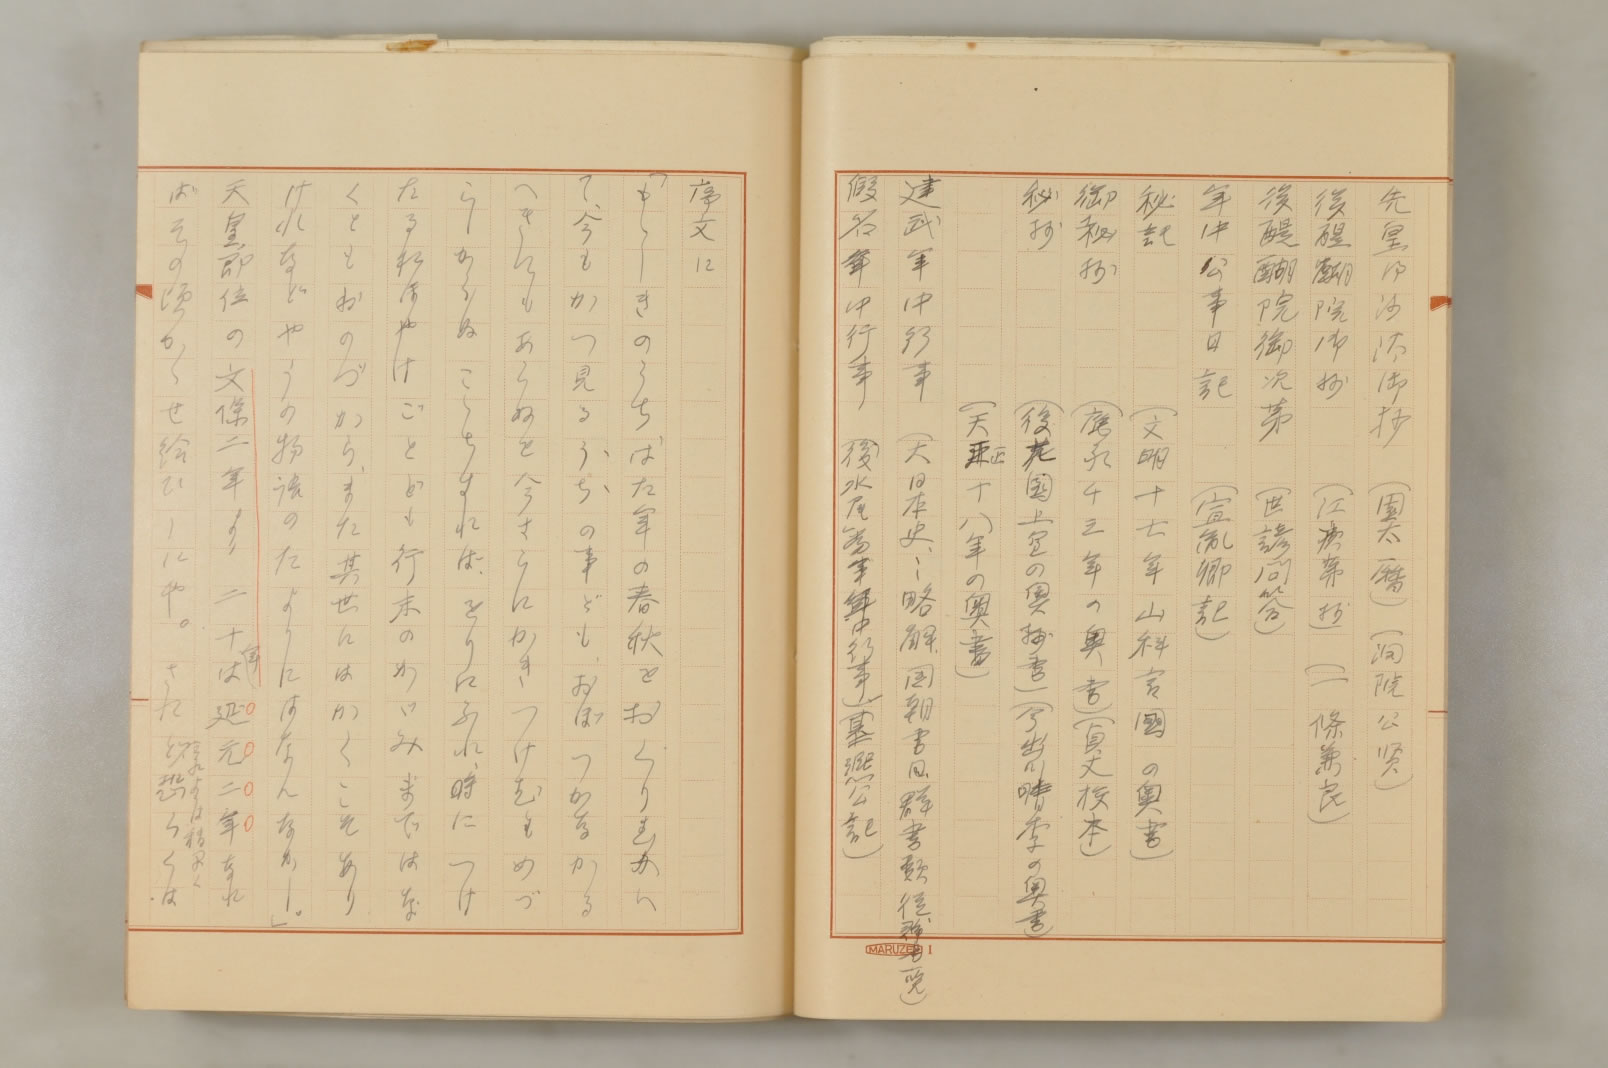 先皇御沙汰御抄 (園太暦) (洞院公賢)
後醍醐院御抄 (江次第抄) (一條兼良)
後醍醐院御次第 (世諺問答)
年中公事日記 (宣胤卿記)
秘記 (文明十七年山科言國の奥書)
御秘抄 (應永十三年の奥書) (貞丈校本)
秘抄 (後花園上皇の奥書) (今出川晴季の奥書)
(天正十八年の奥書)
建武年中行事 (大日本史、国朝書目、群書類従、一覧)
假名年中行事 (後水尾年中行事) (基凞公記)
MARUZEN 1
序文に
「もゝしきのうちばた年の春秋をおくりむかへ
て、今もかつ見るうちの事ども、おぼつかなかる
へきにもあらぬを今さらにかきつけむもめづ
らしからぬこゝちすれば、をりにふれ、時につけ
たるおほやけごとども行末のかゝみまではな
くともおのづから、また其世にはかくこそあり
けれなどやうの物語のたよりにはなんなかし。」
天皇即位の文保二年より二十年は延元二年なれ
ばその頃かゝせ給ひしにや。されど恐らくは